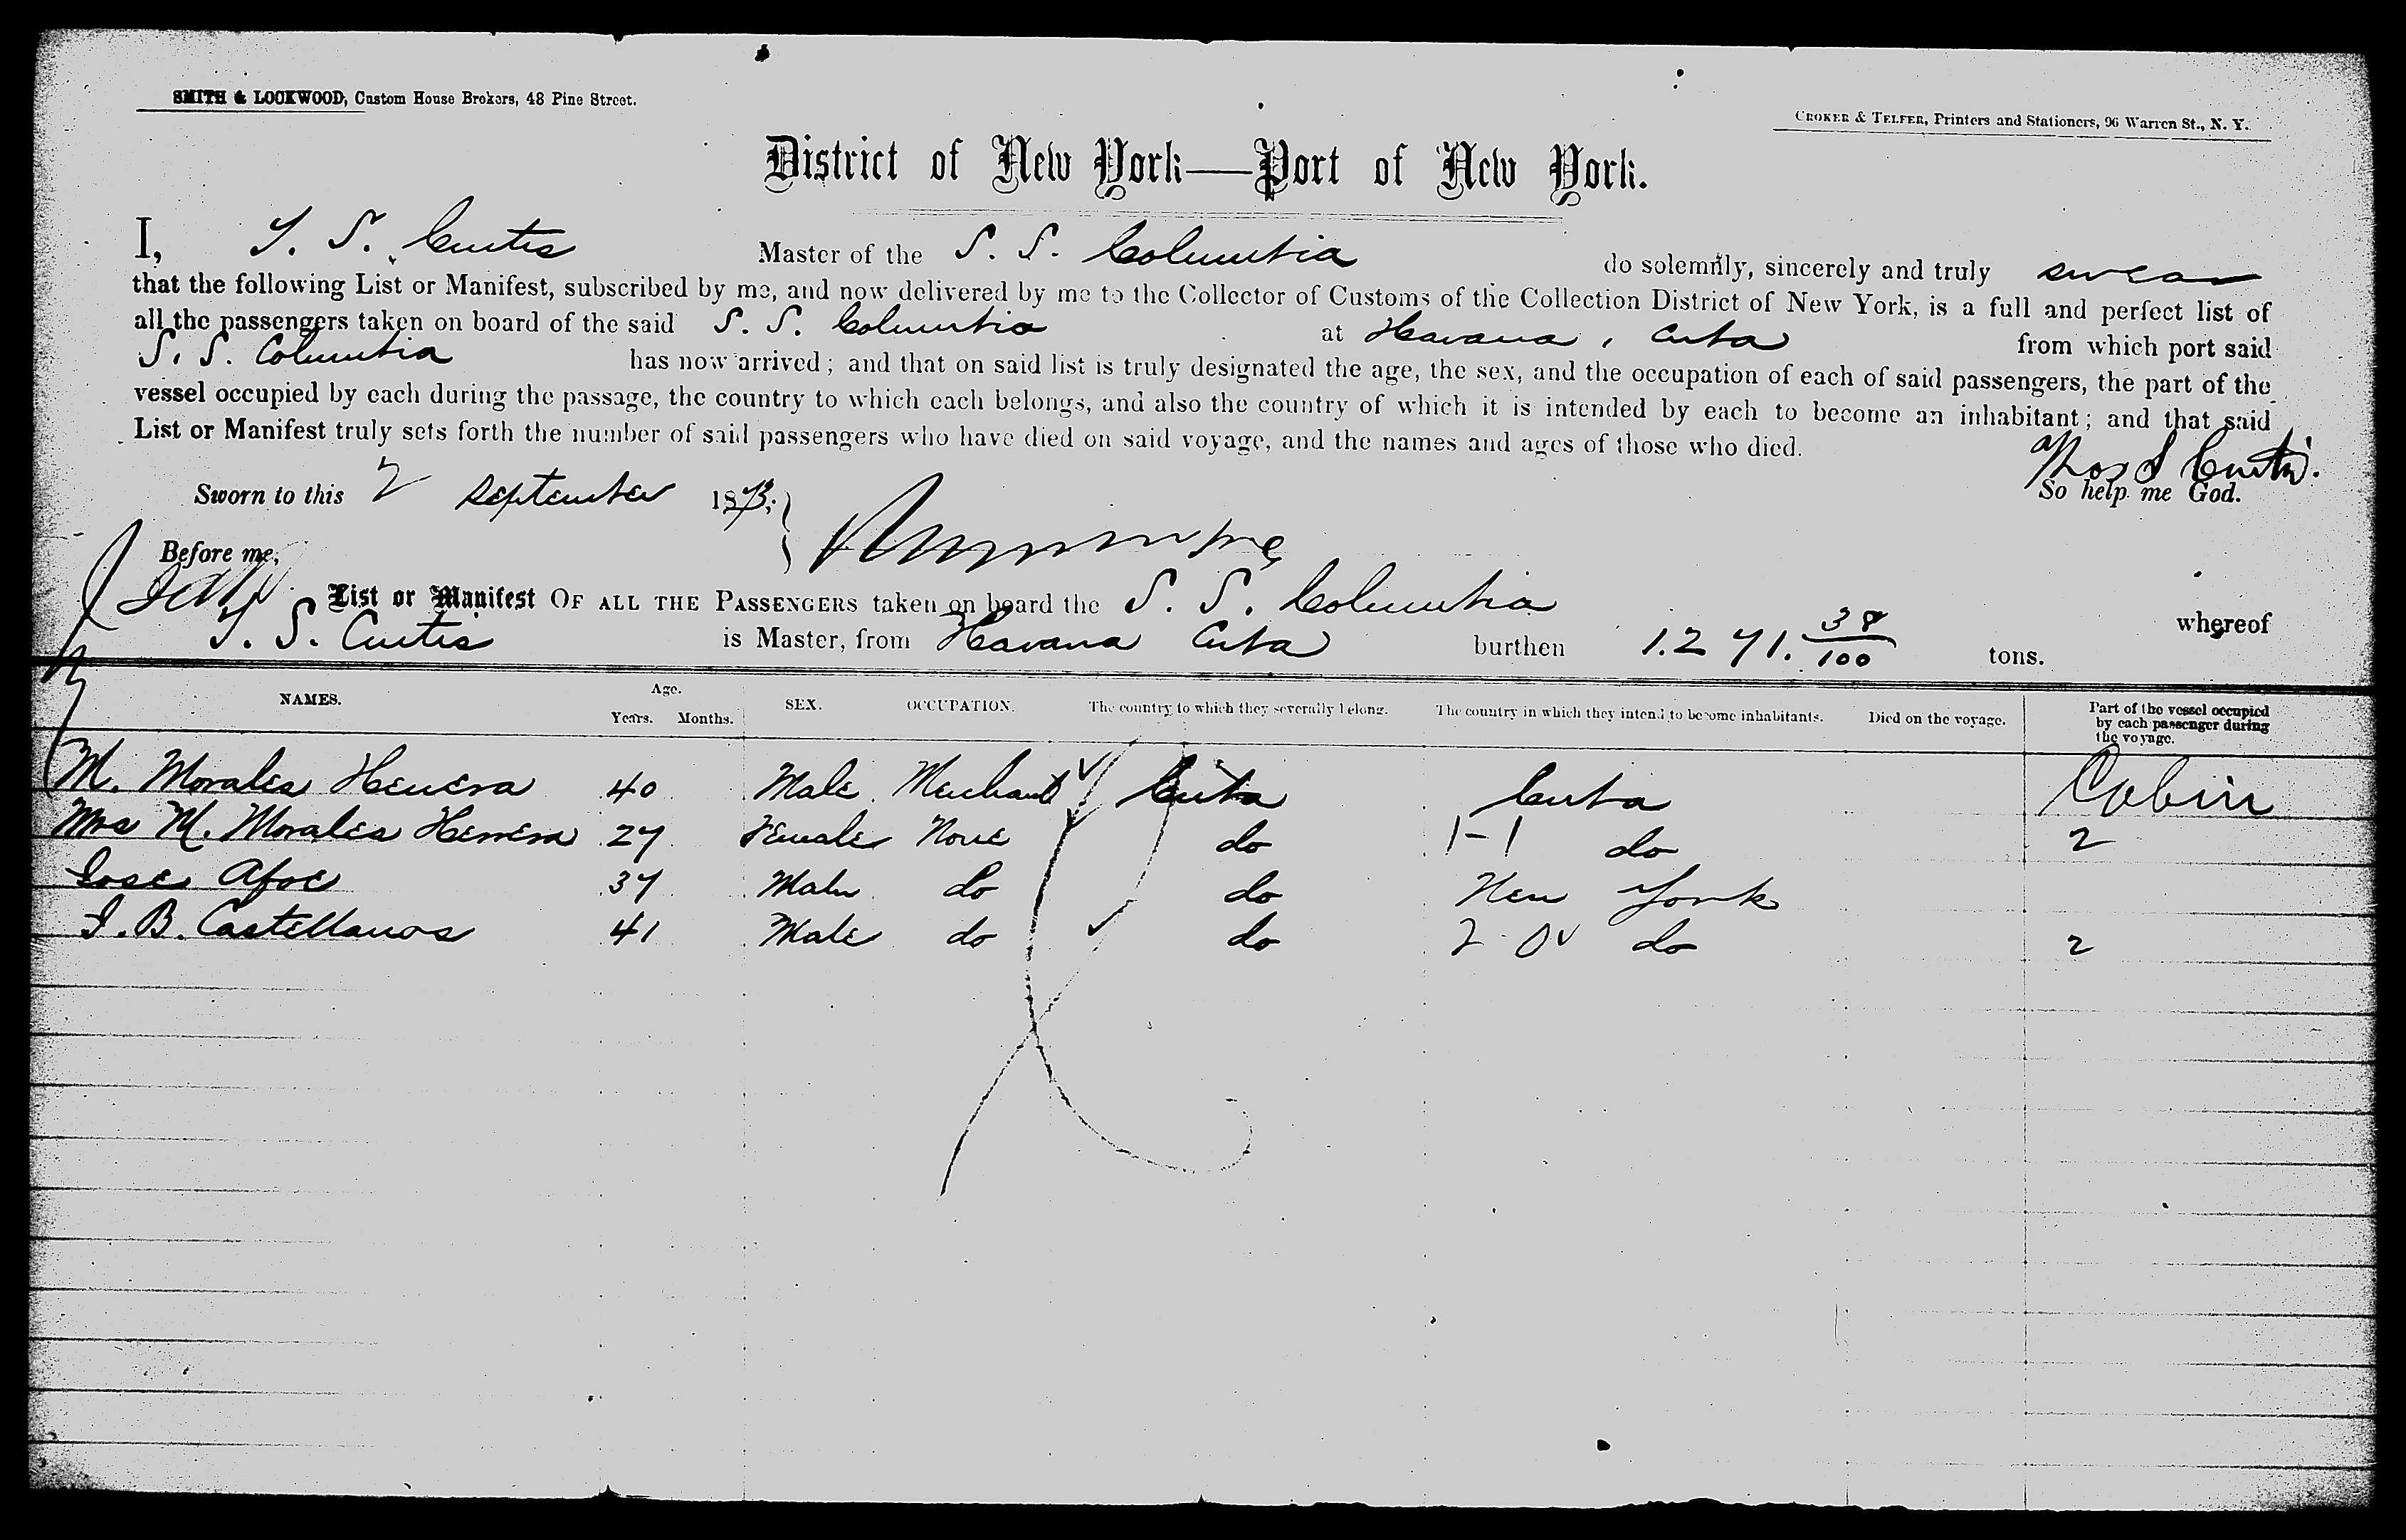 SMITH & LOCKWOOD, Custom House Brokers, 48 Pine Street.
CROKER & TELFER, Printers and Stationers, 96 Warren St., N. Y.
District of New York—Port of New York.
I, T. S. Curtis Master of the S. S. Columbia do solemnly, sincerely and truly swear
that the following List or Manifest, subscribed by me, and now delivered by me to the Collector of Customs of the Collection District of New York, is a full and perfect list of
all the passengers taken on board of the said S. S. Columbia at Havana, Cuba from which port said
S. S. Columbia has now arrived; and that on said list is truly designated the age, the sex, and the occupation of each of said passengers, the part of the
vessel occupied by each during the passage, the country to which each belongs, and also the country of which it is intended by each to become an inhabitant; and that said
List or Manifest truly sets forth the number of said passengers who have died on said voyage, and the names and ages of those who died.
Thos S Curtis.
Sworn to this 2 September 1873. So help me God.
Before me,
List or Manifest OF ALL THE PASSENGERS taken on board the S. S. Columbia whereof
T. S. Curtis is Master, from Havana Cuba burthen 1.271. 38/100 tons.
NAMES. Age. Years. Months. SEX. OCCUPATION. The country to which they severally belong. The country in which they intend to become inhabitants. Died on the voyage. Part of the vessel occupied by each passenger during the voyage.
M. Morales Herrera 40 Male Merchant Cuba Cuba Cabin
Mrs M. Morales Herrera 27 Female None do 1-1 do 2
Jose Afoe 37 Male do do New York
J. B. Castellanos 41 Male do do 2 0 do 2